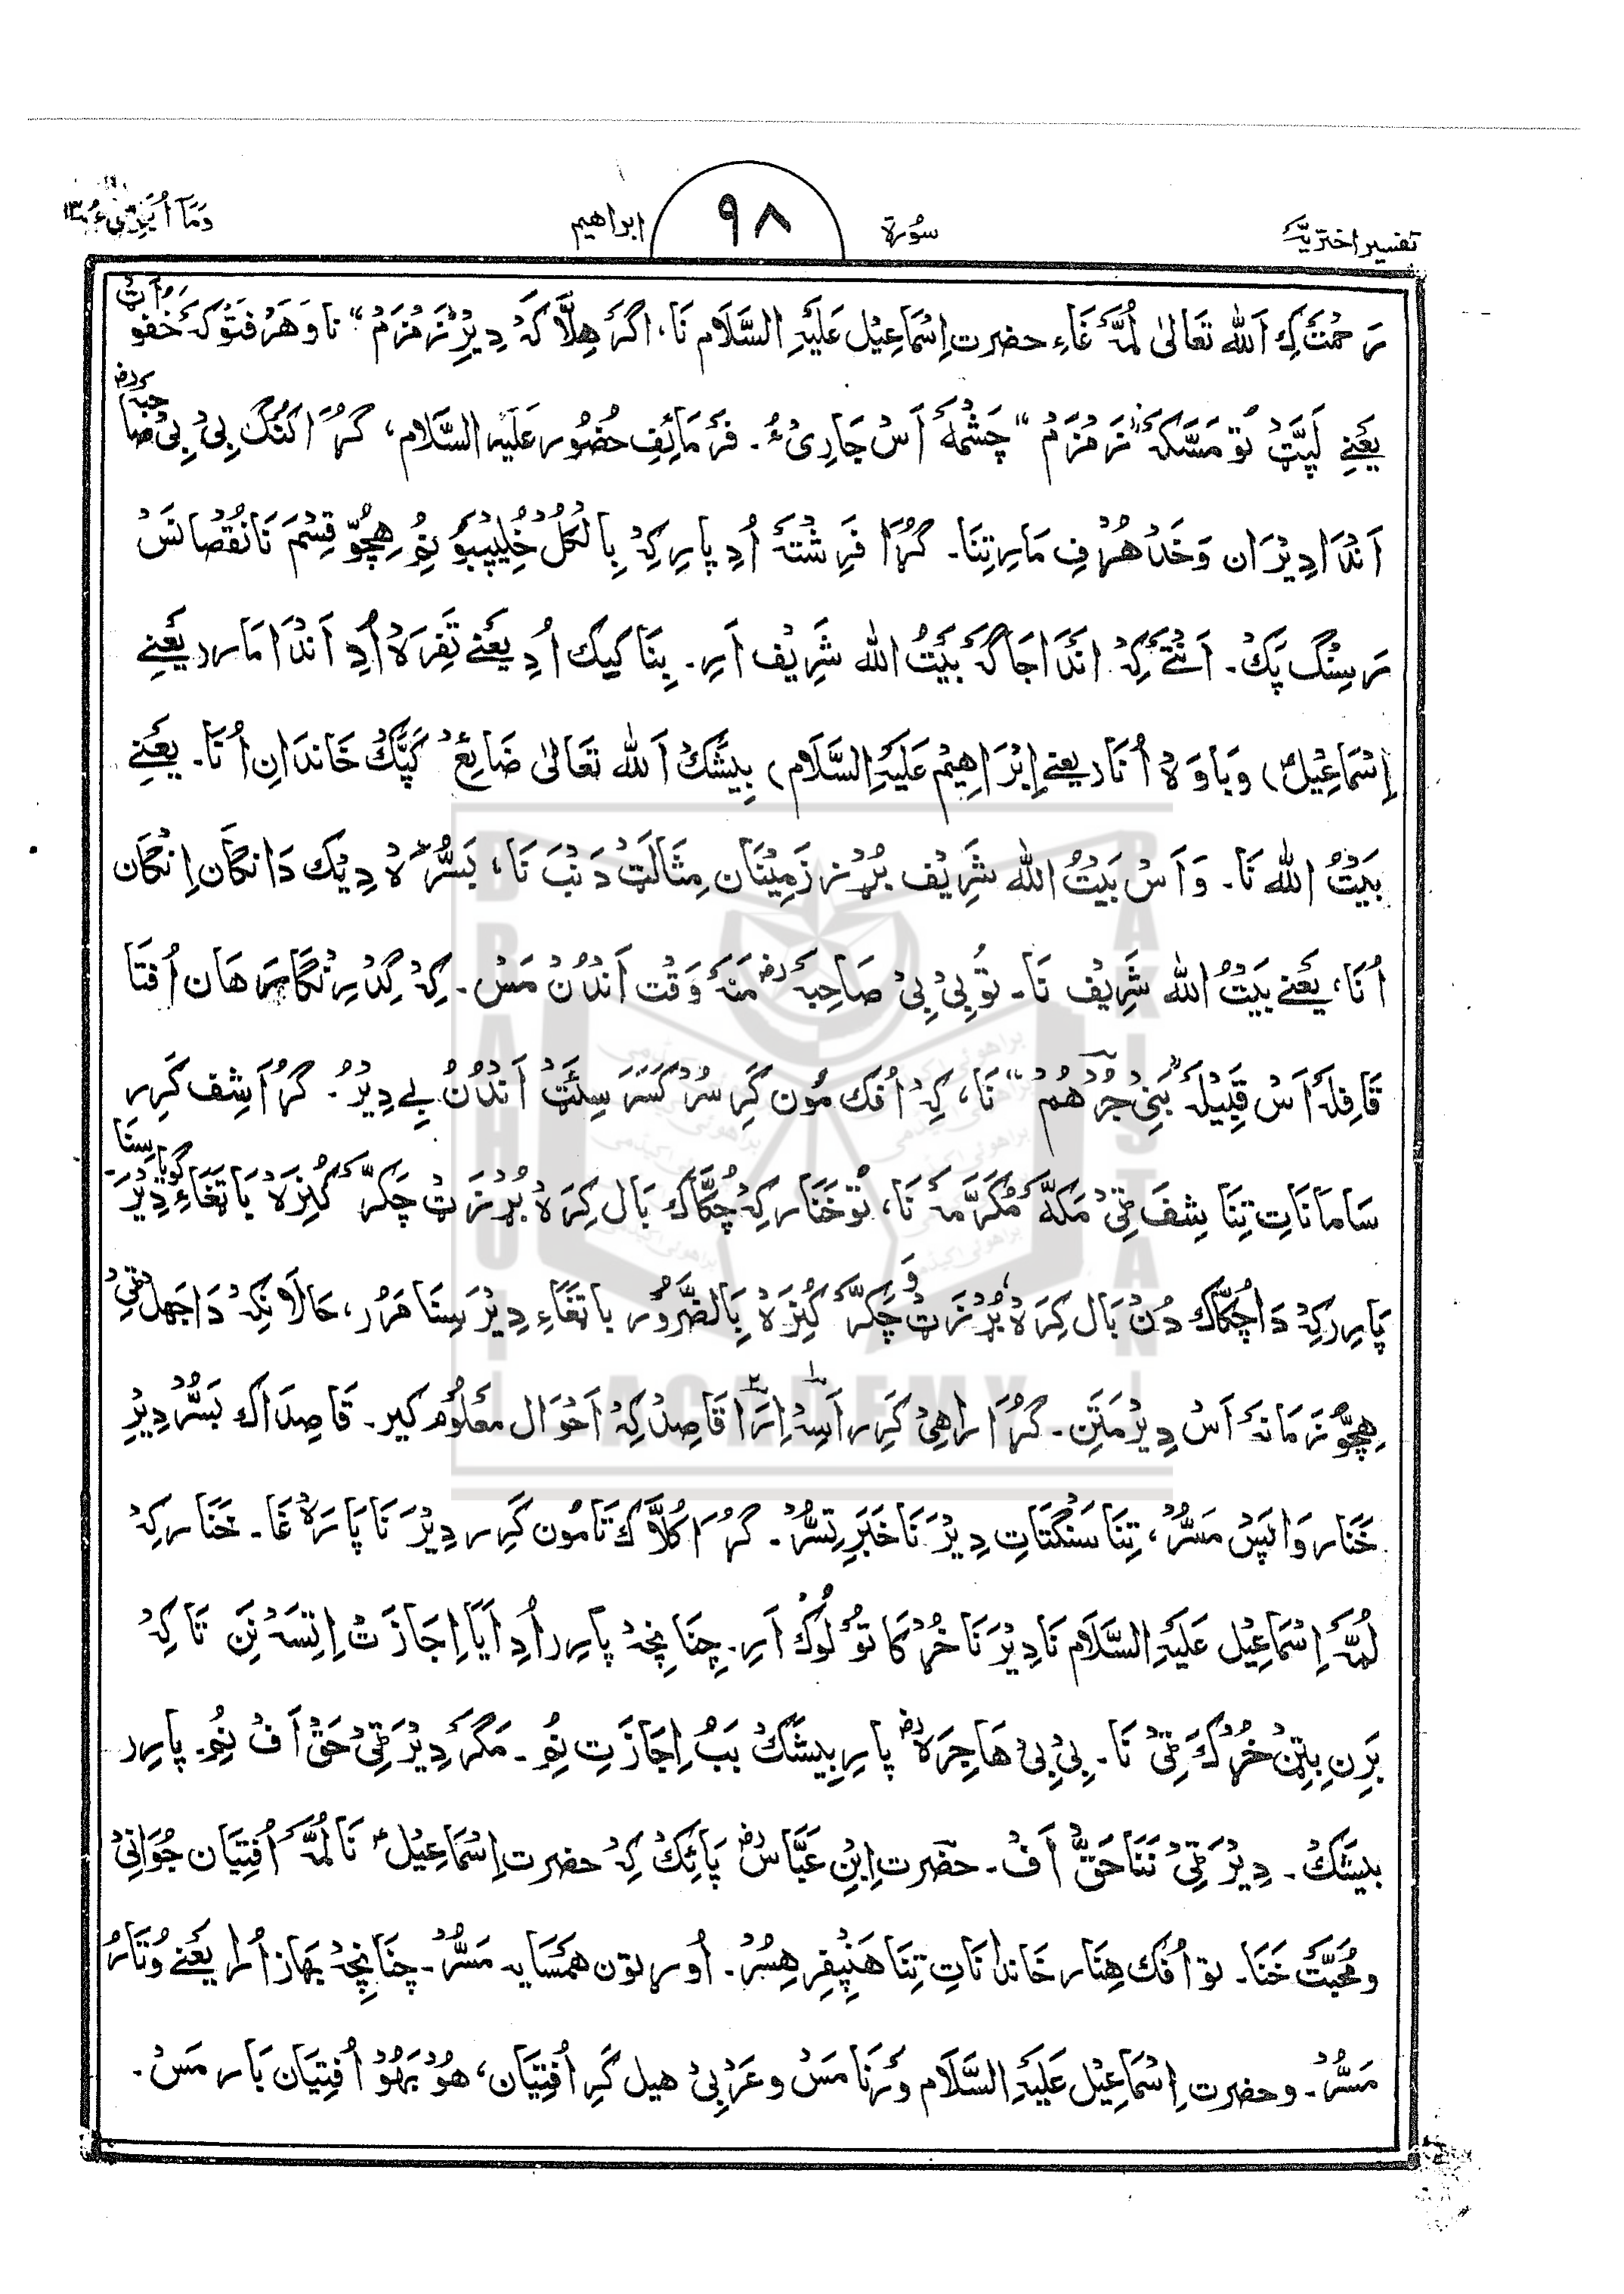 تفسیر اختریہ سُورۃ ۹۸ ابراھیم وَمَآ اُبَرِّیءُ ۱۳
رَحْمَتْ کِ اَللہ تَعَالیٰ لُمَّہ غَاءِ حضرت اِسْمَاعِیْل عَلَیْہِ السَّلَام نَا، اگر ھِلَّا کَہ دِیْرِ "زَمْزَمْ" نا وَھَرْ فتَوکہ خَفو وَاَتْ
یَعْنِے لَپَّٹْ تو مَسَّکَہ "زَمْزَمْ" چَشْمَہ اَسْ جَارِیْ ءُ۔ فَرمَائِفِ حُضُور عَلَیْہِ السَّلَام، گُرَا کُنْگ بِیْ بِیْ صَاحِبَہؓ
اَنْدَا دِیْرَان وَخَدْ ھُرْفِ مَارِ تِنَا۔ گُرَا فَرِشْتَہ اُدِ پارِ کِہ بِالْکُلْ خُلِیْپَبو نُمْ ھِچّو قِسْمَ نَا نُقْصَانَسْ
رَسِنْگ پَکْ۔ اَنْتَے کِہ اَنْدَا جَاگَہ بَیْتُ اللہ شَرِیْف اَرِ۔ بِنَا کِیکْ اُدِ یَعْنے تَفِرَہْ اُدِ اَنْدَا مَار (یَعْنِے
اِسْمَاعِیْلؑ) وَبَاوَہْ اُنَا (یعنے اِبْرَاھِیْم عَلَیْہِ السَّلَام) بِیْشَکْ اَللہ تَعَالیٰ ضَائِعْ کَپَّکْ خَانْدَانِ اُنَا۔ یَعْنِے
بَیْتُ اللہ نَا۔ وَاَسْ بَیْتُ اللہ شَرِیْف بُرْزْ زَمِیْنَان مِثَالَٹْ دَنْبَ نَا، بَسُّرَہْ دِیْکْ دَانْگَان اِنْگَان
اُنَا، یَعْنے بَیْتُ اللہ شَرِیْف نَا۔ تو بِیْ بِیْ صَاحِبَہؓ مَنَہ وَقْت اَنْدُنْ مَسْ۔ کِہ گِدْرِنْگَار ھَان اُفْتَا
قَافِلَہ اَسْ قَبِیْلَہ "بَنِیْ جُرْھُمْ" نَا، کِہ اُفَکْ مُون کَرِسُرْ کَسَرَ سِٹَٹْ اَنْدُنْ بے دِیْرُ۔ گُرَا شِف کَرِر
سَامَانَاتِ تِنَا شِفَ ٹِیْ مَکَّہ مُکَرَّمَہ نَا، تو خَنَار کِہ چُکَّاکْ بَال کِرَہْ بُرْزَٹْ چَکَّر کُنْزِہْ بَاتَغَاءِ دِیْرَ گویا سِنَا
پَارِر کِہ دَا چُکَّاکْ دُنْ بَال کِرَہْ بُرْزَٹْ وَ چَکَّرْ کُنْزِہْ بِالضَّرُوْر بَاتَغَاءِ دِیْرَسِنَا مَرُر، حَالَانِکِہ دَا جَھل ٹِیْ
ھِچّو زَمَانَہ اَسْ دِیْر مَتَنِ۔ گُرَا رَاھِیْ کَرِر اَسِہْ اِرَا قَاصِدْ کِہ اَحْوَال مَعْلُوم کیر۔ قَاصِدَاکْ بَسُّرْ دِیْرِ
خَنَار وَاپَسْ مَسُّرْ، تِنَا سَنْگَتَاتِ دِیْرَ نَا خَبَرِ تِسُّرْ۔ گُرَا کُلَّاکْ تَا مُون کَرِر دِیْرَ نَا پَارَہْ غَا۔ خَنَار کِہ
لُمَّہ اِسْمَاعِیْل عَلَیْہِ السَّلَام نَا دِیْرَ نَا خُرْکَا تُوْلُوکْ اَرِ۔ چِنَانچِہ پَارِر اُدِ اَیَا اِجَازَتْ اِتِسَہ نَنِ تَا کِہ
بَرِنِ بِتِمْنْ خُرْکَ ٹِیْ نَا۔ بِیْ بِیْ ھَاجِرَہؓ پارِ بِیْشَکْ بَبُ اِجَازَتِ نُمْ۔ مَگَر دِیْرَ ٹِیْ حَقْ اَفْ نُمْ۔ پارِر
بیْشَکْ۔ دِیْرَ ٹِیْ نَنَا حَقّ اَفْ۔ حضرت اِبْنِ عَبَّاسؓ پَائِکْ کِہ حضرت اِسْمَاعِیْلؑ نَا لُمَّہ اُفْتِیَان جُوَانِیْ
ومُحَبَّتْ خَنَا۔ تو اُفَکْ ھِنَار خَانْدَانَاتِ تِنَا ھَنِپِفِر ھِسُرْ۔ اُورتون ھَمْسَایہ مَسُّرْ۔ چِنَانِچِہ بھاز اُرا یَعْنے وُتَارُ
مَسُّرْ۔ وحضرت اِسْمَاعِیْل عَلَیْہِ السَّلَام وَرْنَا مَسْ وعَرَبِیْ ھیل کَرِ اُفْتِیَان، ھُوْبَھُوْ اُفْتِیَان بَار مَسْ۔
BRAHUI ACADEMY PAKISTAN